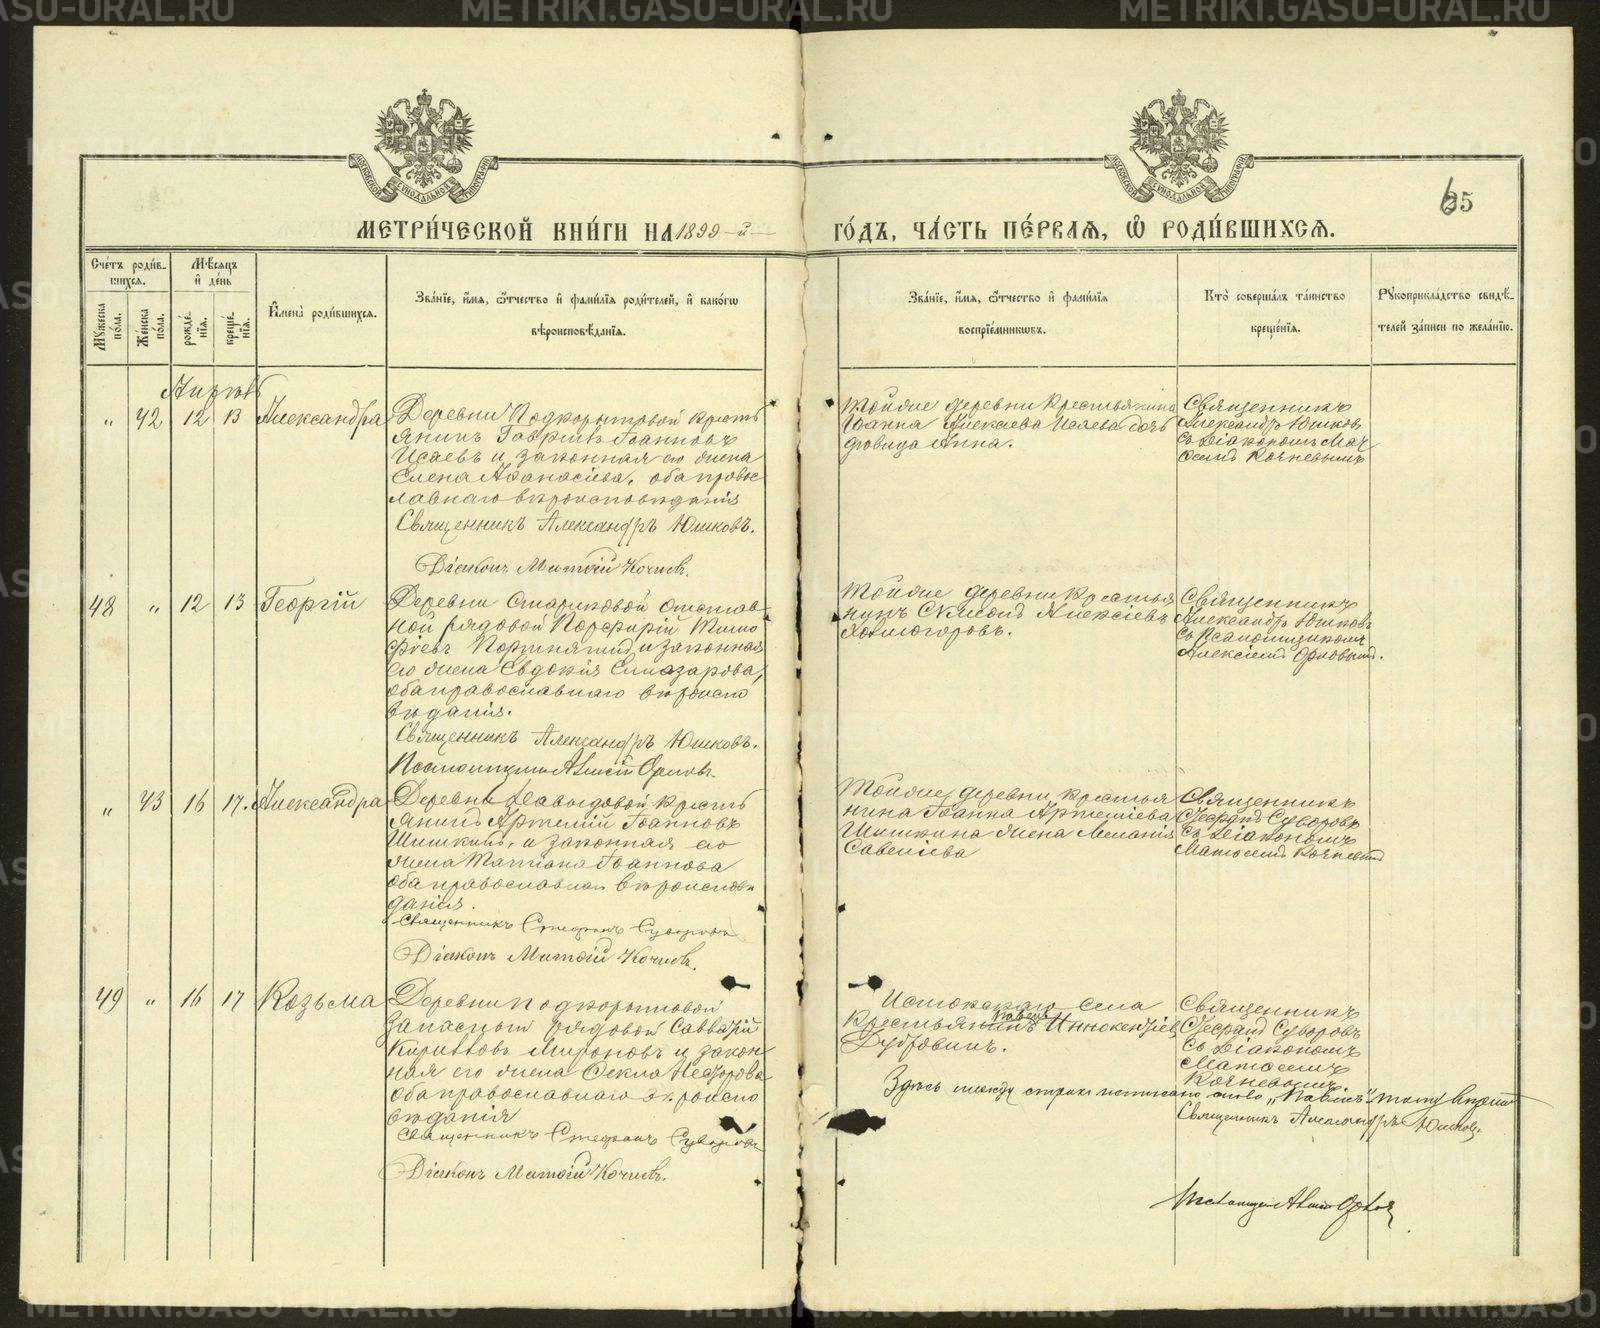 METRIKI.GASO-URAL.RU
МОСКОВСКОЙ СѴНОДАЛЬНОЙ ТИПОГРАФІИ
МОСКОВСКОЙ СѴНОДАЛЬНОЙ ТИПОГРАФІИ
65
МЕТРИ́ЧЕСКОЙ КНИ́ГИ НА 1899-й ГО́ДЪ, ЧА́СТЬ ПЕ́РВАѦ, Ѽ РОДИ́ВШИХСѦ.
Сче́тъ роди́в-
шихсѧ.
Мꙋ́жеска по́ла.
Же́нска по́ла.
Мѣ́сѧцъ и҆ де́нь
рожде́-
нїѧ.
креще́-
нїѧ.
И҆мена̀ роди́вшихсѧ.
Зва́нїе, и҆́мѧ, ѻ҆́тчество и҆ фами́лїѧ роди́телей, и҆ како́гѡ
вѣроисповѣ́данїѧ.
Зва́нїе, и҆́мѧ, ѻ҆́тчество и҆ фами́лїѧ
воспрїе́мникѡвъ.
Кто̀ соверша́лъ та́инство
креще́нїѧ.
Рꙋкоприкла́дство свидѣ́-
телей за́писи по жела́нїю.
Апрѣль
„ 42 12 13 Александра
Деревни Подкорытовой кресть
янинъ Гавріилъ Іоанновъ
Исаевъ и законная его жена
Елена Аѳанасіева, оба правос
лавнаго вѣроисповѣданія
Священникъ Александръ Юшковъ.
Діаконъ Матѳій Кочневъ.
Той же деревни крестьянина
Іоанна Алексѣева Исаева дочь
дѣвица Анна.
Священникъ
Александръ Юшковъ
съ Діакономъ Мат
ѳеемъ Кочневымъ
48 „ 12 13 Георгій
Деревни Стариковой отстав
ной рядовой Порфирій Тимо
ѳіевъ и законная
его жена Евдокія Елиазарова,
оба православнаго вѣроиспо
вѣданія.
Священникъ Александръ Юшковъ.
Псаломщикъ Алексій Орловъ.
Той же деревни крестья
нинъ Алексіевъ
Холмогоровъ.
Священникъ
Александръ Юшковъ
съ Псаломщикомъ
Алексіемъ Орловымъ.
„ 43 16 17. Александра
Деревни Давыдовой кресть
янинъ Артемій Іоанновъ
Шишкинъ, и законная его
жена Татіана Іоаннова
оба православнаго вѣроисповѣ
данія.
Священникъ Стефанъ Суворовъ
Діаконъ Матѳій Кочневъ.
Той же деревни крестья
нина Іоанна Артеміева
Шишкина жена Меланія
Савеліева
Священникъ
Стефанъ Суворовъ
съ Діакономъ
Матѳеемъ Кочневымъ
49 „ 16 17 Козьма
Деревни Подкорытовой
запасный рядовой Савватій
Кирилловъ Мироновъ и закон
ная его жена Ѳекла Ѳедорова
оба православнаго вѣроиспо
вѣданія
Священникъ Стефанъ Суворовъ
Діаконъ Матѳій Кочневъ.
Истокскаго села
Павелъ
крестьянинъ Иннокентіевъ
Дубровинъ.
Священникъ
Стефанъ Суворовъ
съ Діакономъ
Матѳеемъ
Кочневымъ.
Здѣсь между строкъ написано слово „Павелъ“ тому вѣрить
Священникъ Александръ Юшковъ.
Псаломщикъ Алексій Орловъ